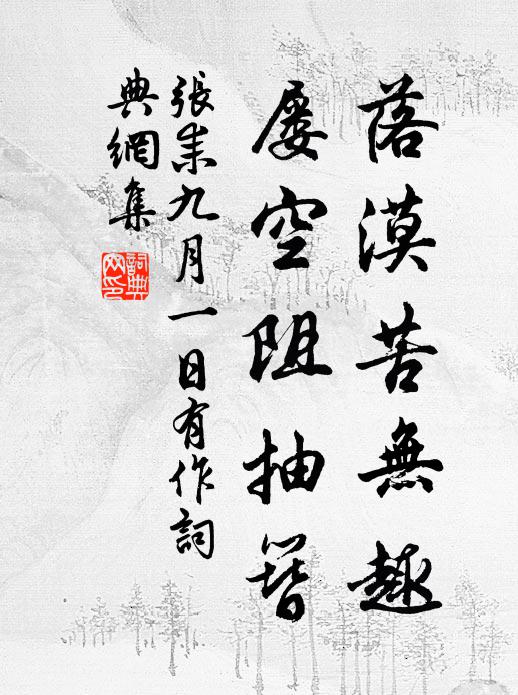 落漠苦無趣
屡空阻抽簪
張耒九月一日有作詞
典網集
詞典網印